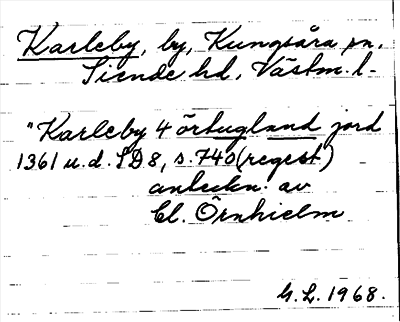 Karleby, by, Kungsåra sn,
Siende hd, Västm. l.
"Karleby 4 örtugland jord
1361 u.d. SD 8, s. 740 (regest)
anteckn. av
Cl. Örnhielm
G.L. 1968.